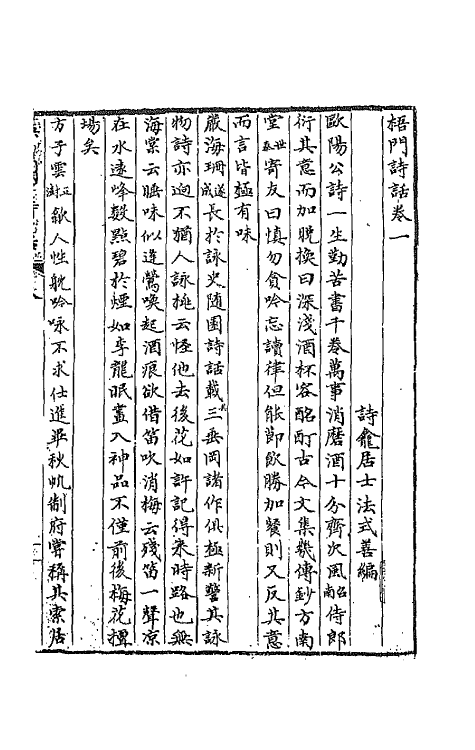 梧門詩話卷一
詩龕居士法式善編
歐陽公詩一生勤苦書千卷萬事消磨酒十分齊次風召南侍郎
衍其意而加脫換曰深淺酒杯容酩酊古今文集幾傳鈔方南
堂世泰寄友曰慎勿貪吟忘讀律但能節飲勝加餐則又反其意
而言皆極有味
嚴海珊遂成長於詠史隨園詩話載三垂岡諸作俱極新警其詠
物詩亦迥不猶人詠桃云怪他去後花如許記得來時路也無
海棠云睡味似逢鶯喚起酒痕欲借笛吹消梅云殘笛一聲涼
在水遠峰數點碧於煙如李龍眠畫入神品不僅前後梅花擅
場矣
方子雲正澍歙人性躭吟咏不求仕進畢秋帆制府嘗稱其索居